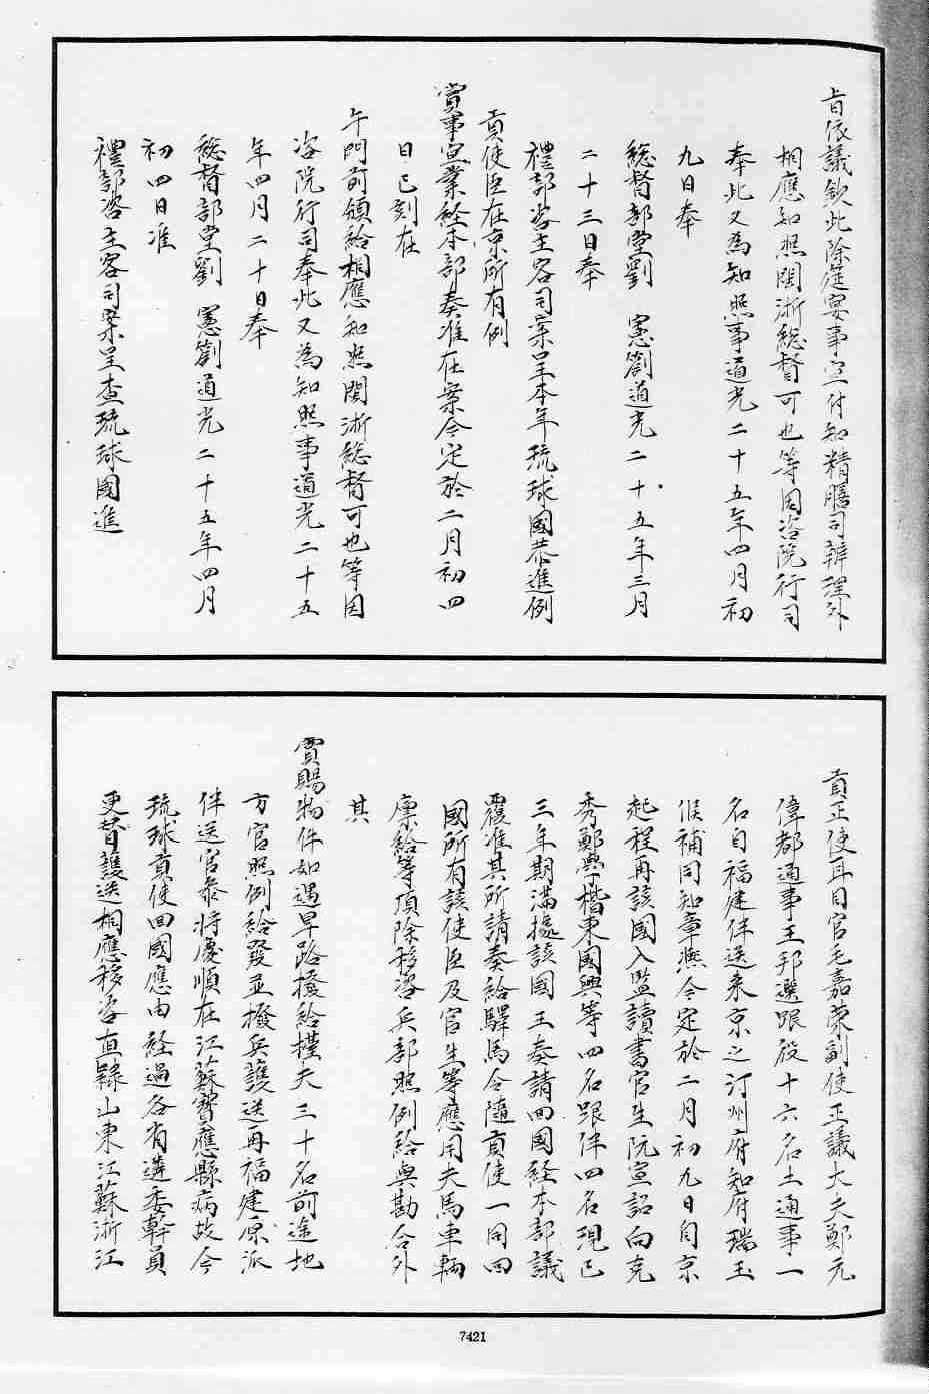 旨依議欽此除筵宴事宜付知精膳司辦理外
相應知照閩浙總督可也等因咨院行司
奉此又為知照事道光二十五年四月初
九日奉
總督部堂劉　憲劄道光二十五年三月
二十三日奉
禮部咨主客司案呈本年琉球國恭進例
貢使臣在京所有例
賞事宜業經本部奏准在案今定於二月初四
日巳刻在
午門前頒給相應知照閩浙總督可也等因
咨院行司奉此又為知照事道光二十五
年四月二十日奉
總督部堂劉　憲劄道光二十五年四月
初四日准
禮部咨主客司案呈查琉球國進
貢正使耳目官毛嘉榮副使正議大夫鄭元
偉都通事王邦選跟役十六名土通事一
名自福建伴送來京之汀州府知府瑞玉
候補同知章燕今定於二月初九日自京
起程再該國入監讀書官生阮宣詔向克
秀鄭學楷東國興等四名跟伴四名現已
三年期滿據該國王奏請回國經本部議
覆准其所請奏給驛馬令隨貢使一同回
國所有該使臣及官生等應用夫馬車輛
廩給等項除移咨兵部照例給與勘合外
其
賞賜物件如遇旱路撥給槓夫三十名前途地
方官照例給發並撥兵護送再福建原派
伴送官叅將慶順在江蘇寶應縣病故今
琉球貢使回國應由經過各省遴委幹員
更替護送相應移咨直隸山東江蘇浙江
7421